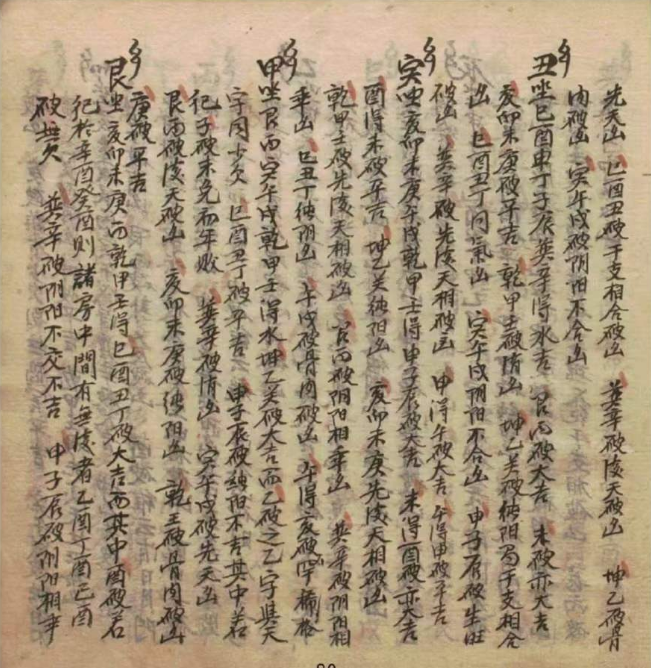 先天凶 巳酉丑破干支相合破凶 巽辛破後天破凶 坤乙破骨
肉破凶 寅午戌破阴阳不合凶
丑坐巳酉申丁子辰巽辛得水吉 艮丙破大吉 未破亦大吉
亥卯未庚破平吉 乾甲壬破情凶 坤乙癸破纳阳局干支相合
凶 巳酉丑丁同氣凶 寅午戌阴阳不合凶 申子辰破生旺
破凶 巽辛破先後天相破凶 甲得午破大吉 午得申破平吉
寅坐亥卯未庚午戌乾甲壬得申子辰破大吉 未得酉破亦大吉
酉得未破平吉 坤乙癸纯阳凶 亥卯未庚先後天相破凶
乾甲壬破先後天相破凶 艮丙破阴阳相乘凶 巽辛破阴阳相
乘凶 巳丑丁纯阴凶 午戌破骨肉破凶 午得亥破
甲坐艮丙寅午戌乾甲壬得水坤乙癸破大吉而乙破之乙字與天
字同少欠 巳酉丑丁破平吉 申子辰破纯阳不吉其中若
犯子破未免初年败 巽辛破情凶 寅午戌破先天凶
艮丙破後天破凶 亥卯未庚破纯阳凶 乾壬破骨肉破凶
庚破平吉
艮坐亥卯未庚丙乾甲壬得巳酉丑丁破大吉而其中酉破若
犯於辛酉癸酉則諸房中間有無後者乙酉丁酉己酉
破無欠 巽辛破阴阳不交不吉 申子辰破阴阳相乘